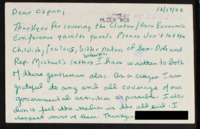 Dear Cspan, 12/17/92
Thank you for covering the Clinton/Gore Economic
Conference panels. Please Don't let the
Childish, Jealous, bitter nature of Senr. Dole and
Rep. Michel's letters I have written to both
of these gentlemen also. As a citizen I am
grateful to any and all coverage of our
governmental activities as possible. I also
don't the media as the all said. I
respect more of them. Thank you